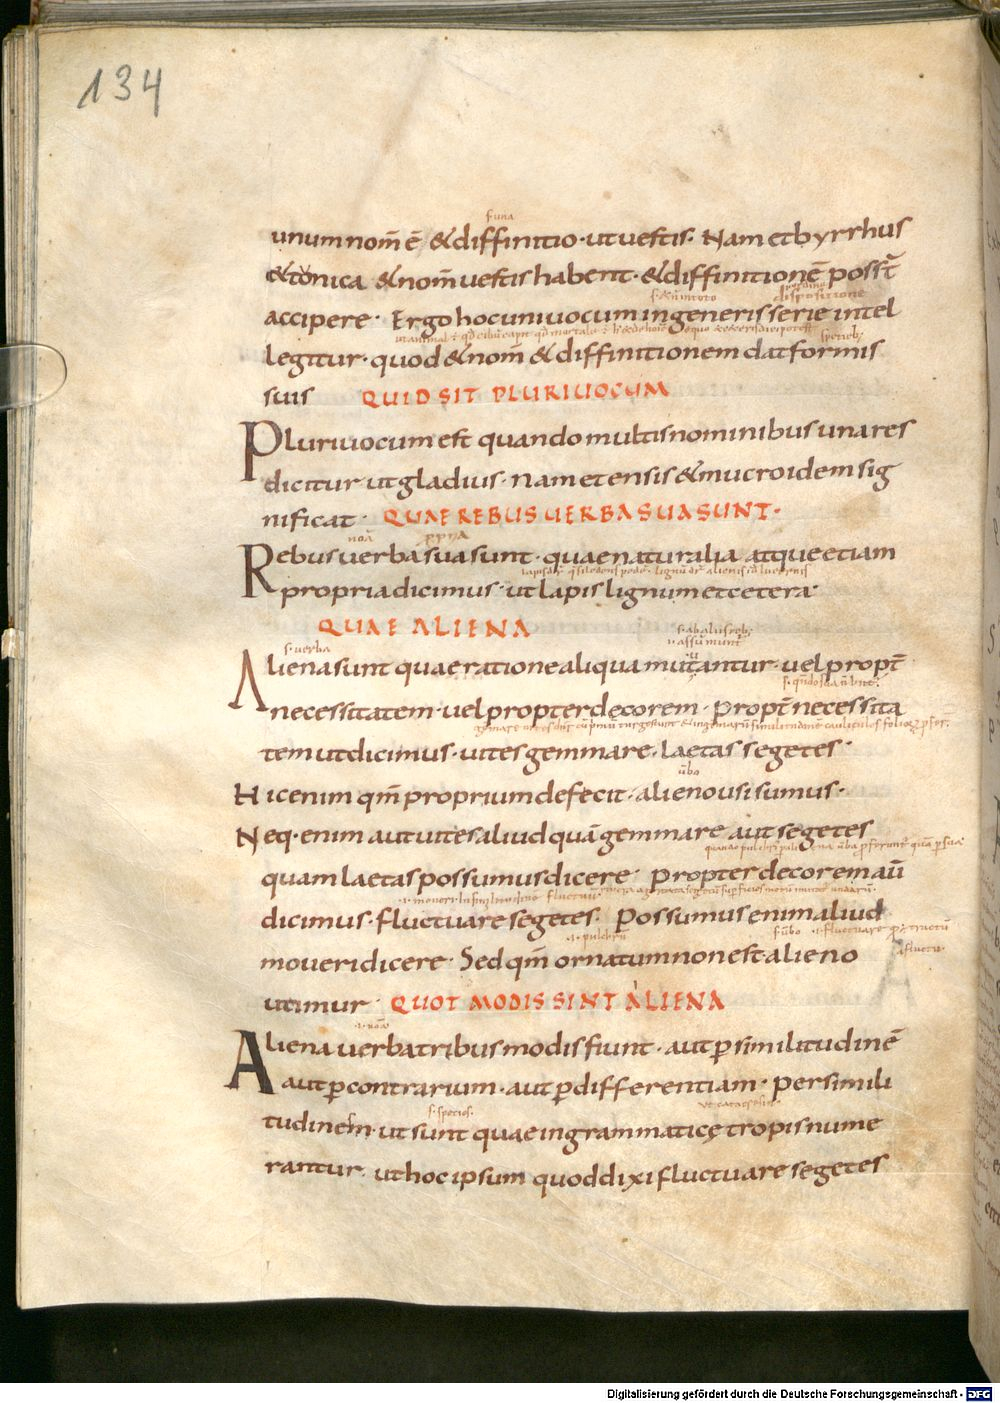 134
unum nom̄ ē & diffinitio · ut uestis · Nam et byrrhus
& tonica & nom̄ uestis habent · & diffinitionē poss̄t
dispositione
accipere · Ergo hoc uniuocum in generis serie intel
legitur · quod & nom̄ & diffinitionem dat formis
suis QUID SIT PLURIUOCUM
Pluriuocum est quando multis nominibus una res
dicitur ut gladius · Nam et ensis & mucro idem sig
nificat · QUAE REBUS UERBA SUA SUNT ·
Rebus uerba sua sunt · quae naturalia atque etiam
propria dicimus · ut lapis lignum et cetera ·
QUAE ALIENA
s · uerba
Aliena sunt quae ratione aliqua mutantur · uel propt̄
necessitatem · uel propter decorem · Propt̄ necessita
tem ut dicimus · uites gemmare · laetas segetes ·
Hic enim qm̄ proprium defecit · alieno usi sumus ·
Neq · enim aut uites aliud quā gemmare aut segetes
quam laetas possumus dicere · Propter decorem aū
dicimus · fluctuare segetes · Possumus enim aliud
moueri dicere · Sed qm̄ ornatum non est alieno
utimur QUOT MODIS SINT ALIENA
Aliena uerba tribus modis fiunt · aut ꝑ similitudinē
aut ꝑ contrarium · aut ꝑ differentiam · Per simili
tudinem · ut sunt quae in grammaticę tropis nume
rantur · ut hoc ipsum quod dixi fluctuare segetes
Digitalisierung gefördert durch die Deutsche Forschungsgemeinschaft - DFG